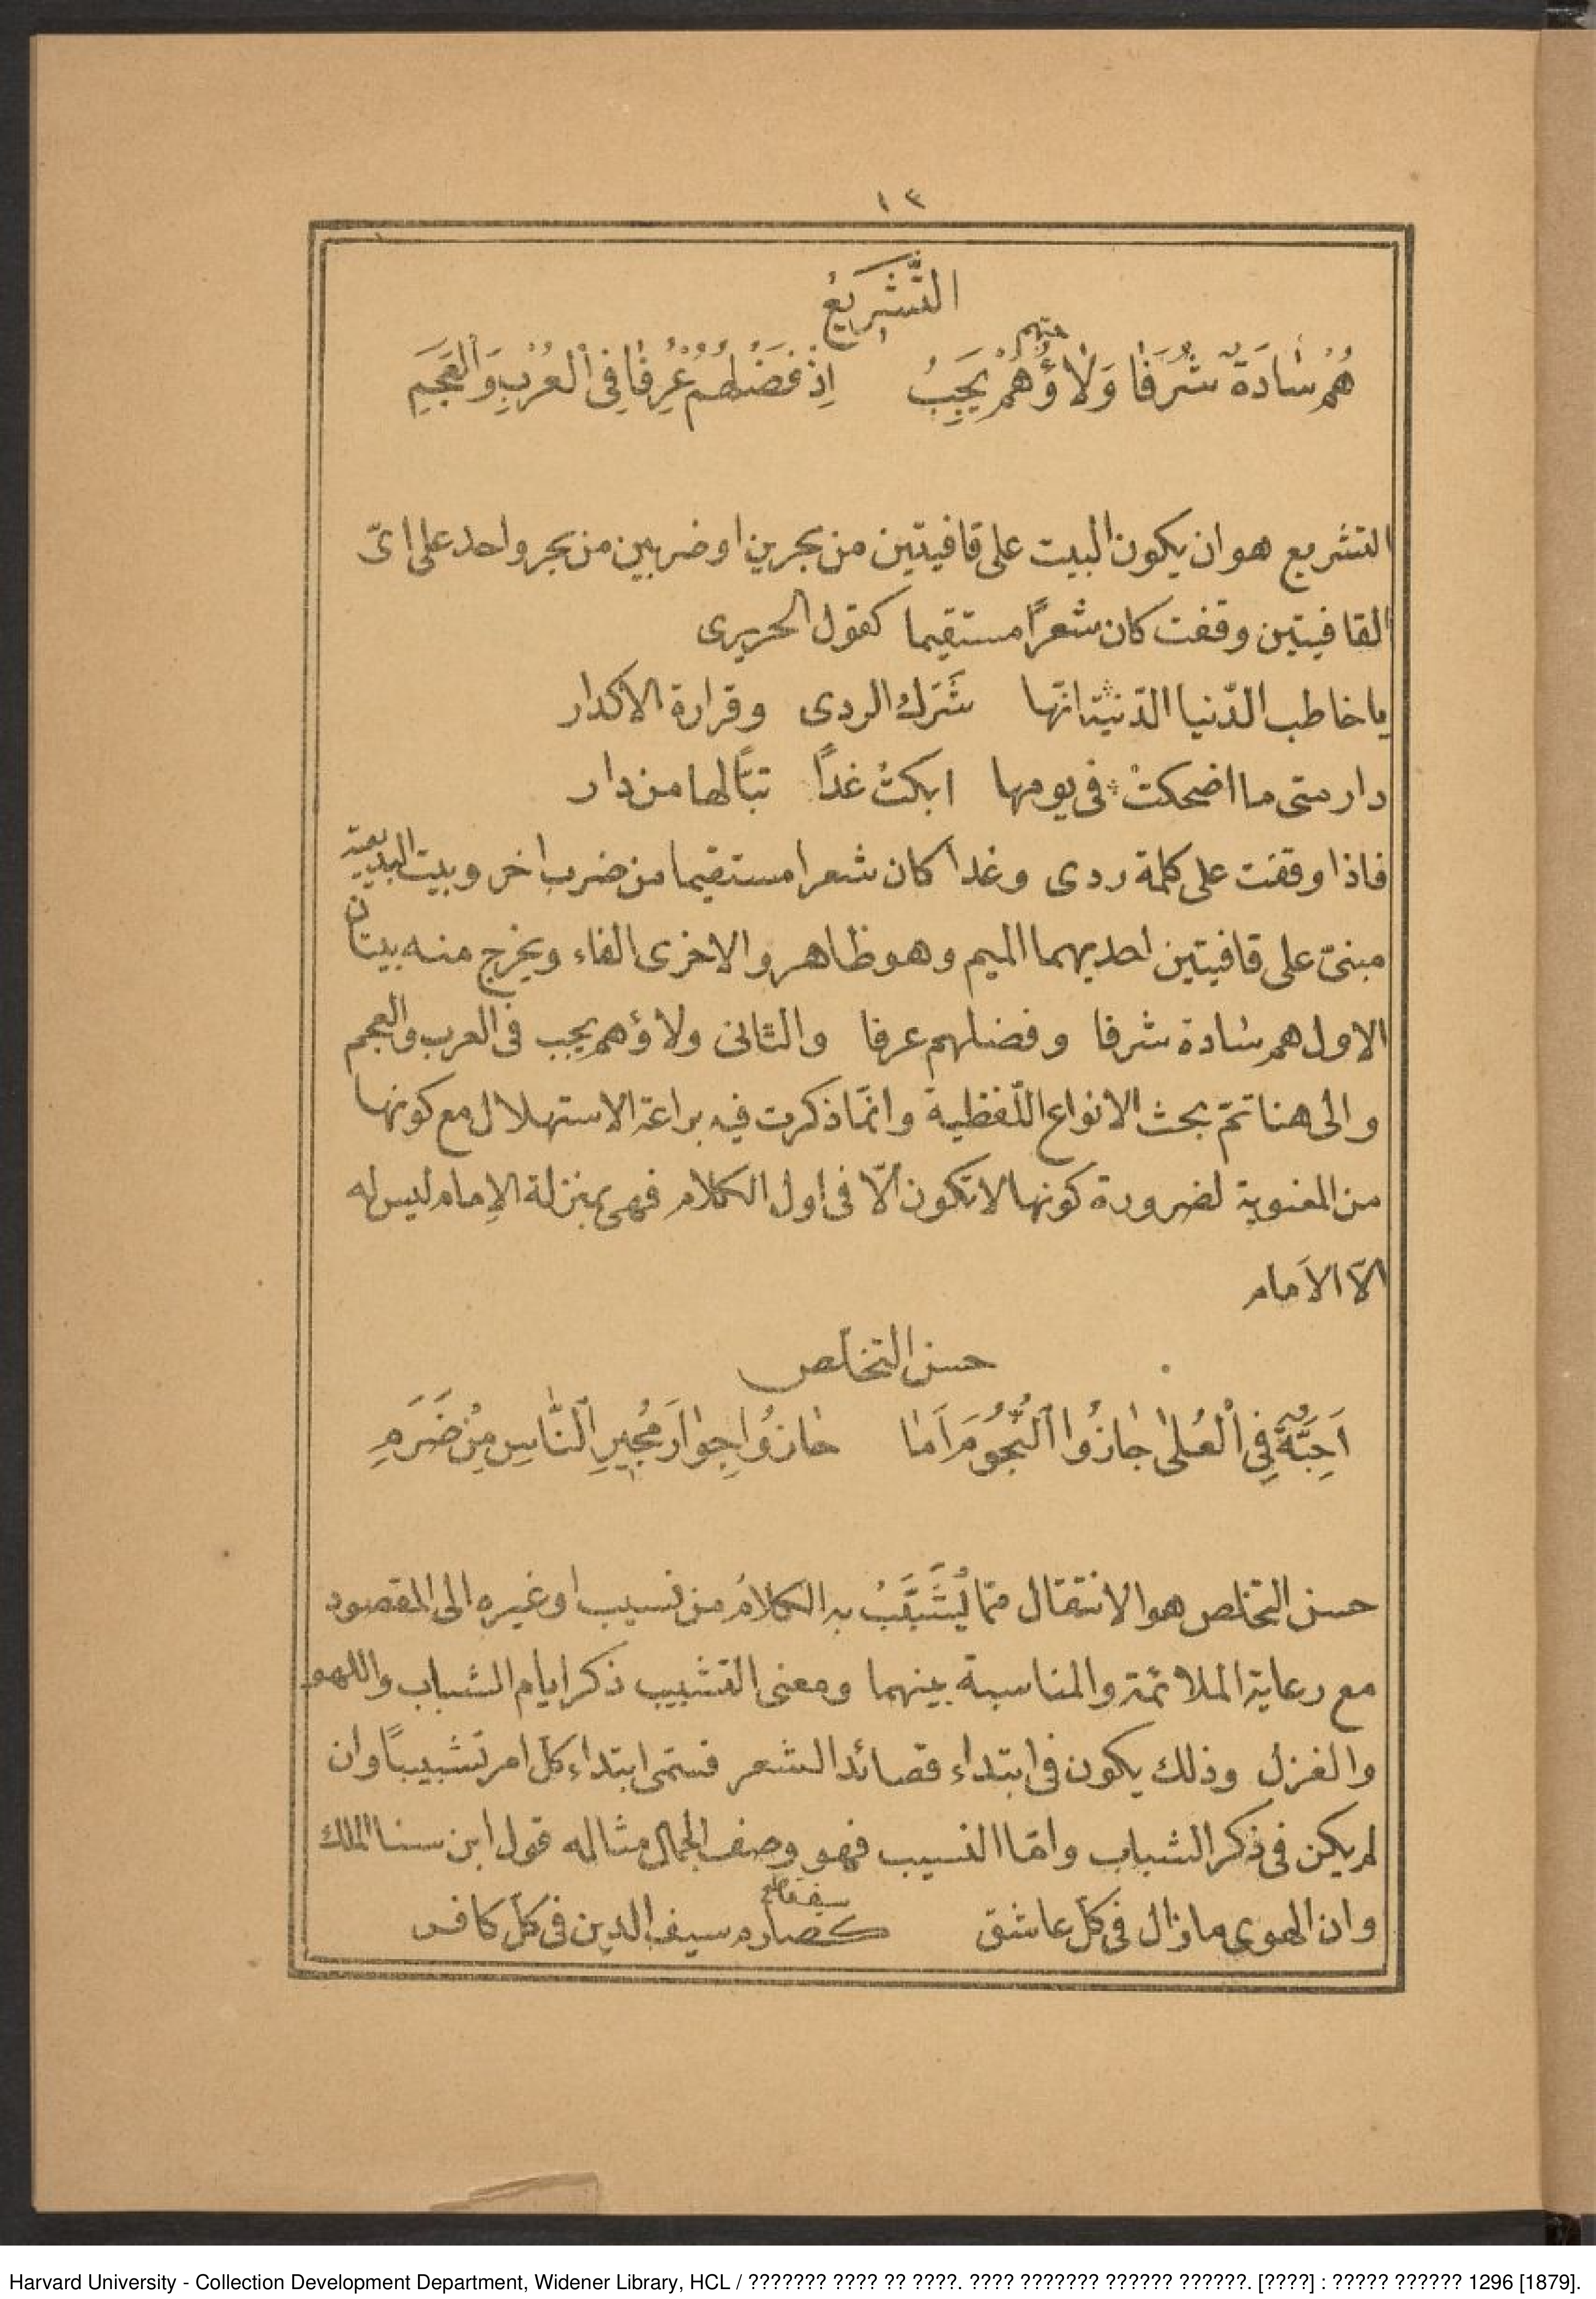 ١٣
التَّشْرِيعُ
هُمْ سٰادَةٌ شَرُفَا وَلٰاؤُهُمْ يَجِبُ اِذْ فَضْلُهُمْ عُرِفَا فِى الْعُرْبِ وَالْعَجَمِ
التشريع هو ان يكون البيت على قافيتين من بحرين او ضربين من بحر واحد على اىّ
القافيتين وقفت كان شعرًا مستقيما كقول الحريرى
يا خاطب الدّنيا الدّنيّة انّها شَرَك الردى وقرارة الاكدار
دار متى ما اضحكتْ فى يومها ابكتْ غدًا تبّا لها من دار
فاذا وقفت على كلمة ردى وغدا كان شعرا مستقيما من ضرب اخر وبيت البديعية
مبنىّ على قافيتين احديهما الميم وهو ظاهر والاخرى الفاء ويخرج منه بيتان
الاول هم سادة شرفا وفضلهم عرفا والثانى ولاؤهم يجب فى العرب والعجم
والى هنا تمّ بحث الانواع اللّفظية وانّما ذكرت فيه براعة الاستهلال مع كونها
من المعنوية لضرورة كونها لا تكون الّا فى اول الكلام فهى بمنزلة الاِمام ليس له
الّا الاَمام
حسن التخلّص
اَحِبَّةٌ فِى الْعُلٰى جٰازُوا النُّجُومَ اَمٰا حٰازُوا جِوٰارَ مُجِيرِ النّٰاسِ مِنْ ضَرَمِ
حسن التخلّص هو الانتقال ممّا يُشَبَّبُ به الكلامُ من نسيب او غيره الى المقصود
مع رعاية الملائمة والمناسبة بينهما ومعنى التشبيب ذكر ايام الشباب واللهو
والغزل وذلك يكون فى ابتداء قصائد الشعر فسمّى ابتداء كل امر تشبيبًا وان
لم يكن فى ذكر الشباب وامّا النسيب فهو وصف الجمال مثاله قول ابن سنا الملك
سيف قاطع
وان الهوى ما زال فى كلّ عاشق كصارم سيف الدين فى كلّ كافر
Harvard University - Collection Development Department, Widener Library, HCL / ??????? ???? ?? ????. ???? ??????? ?????? ??????. [????] : ????? ?????? 1296 [1879].